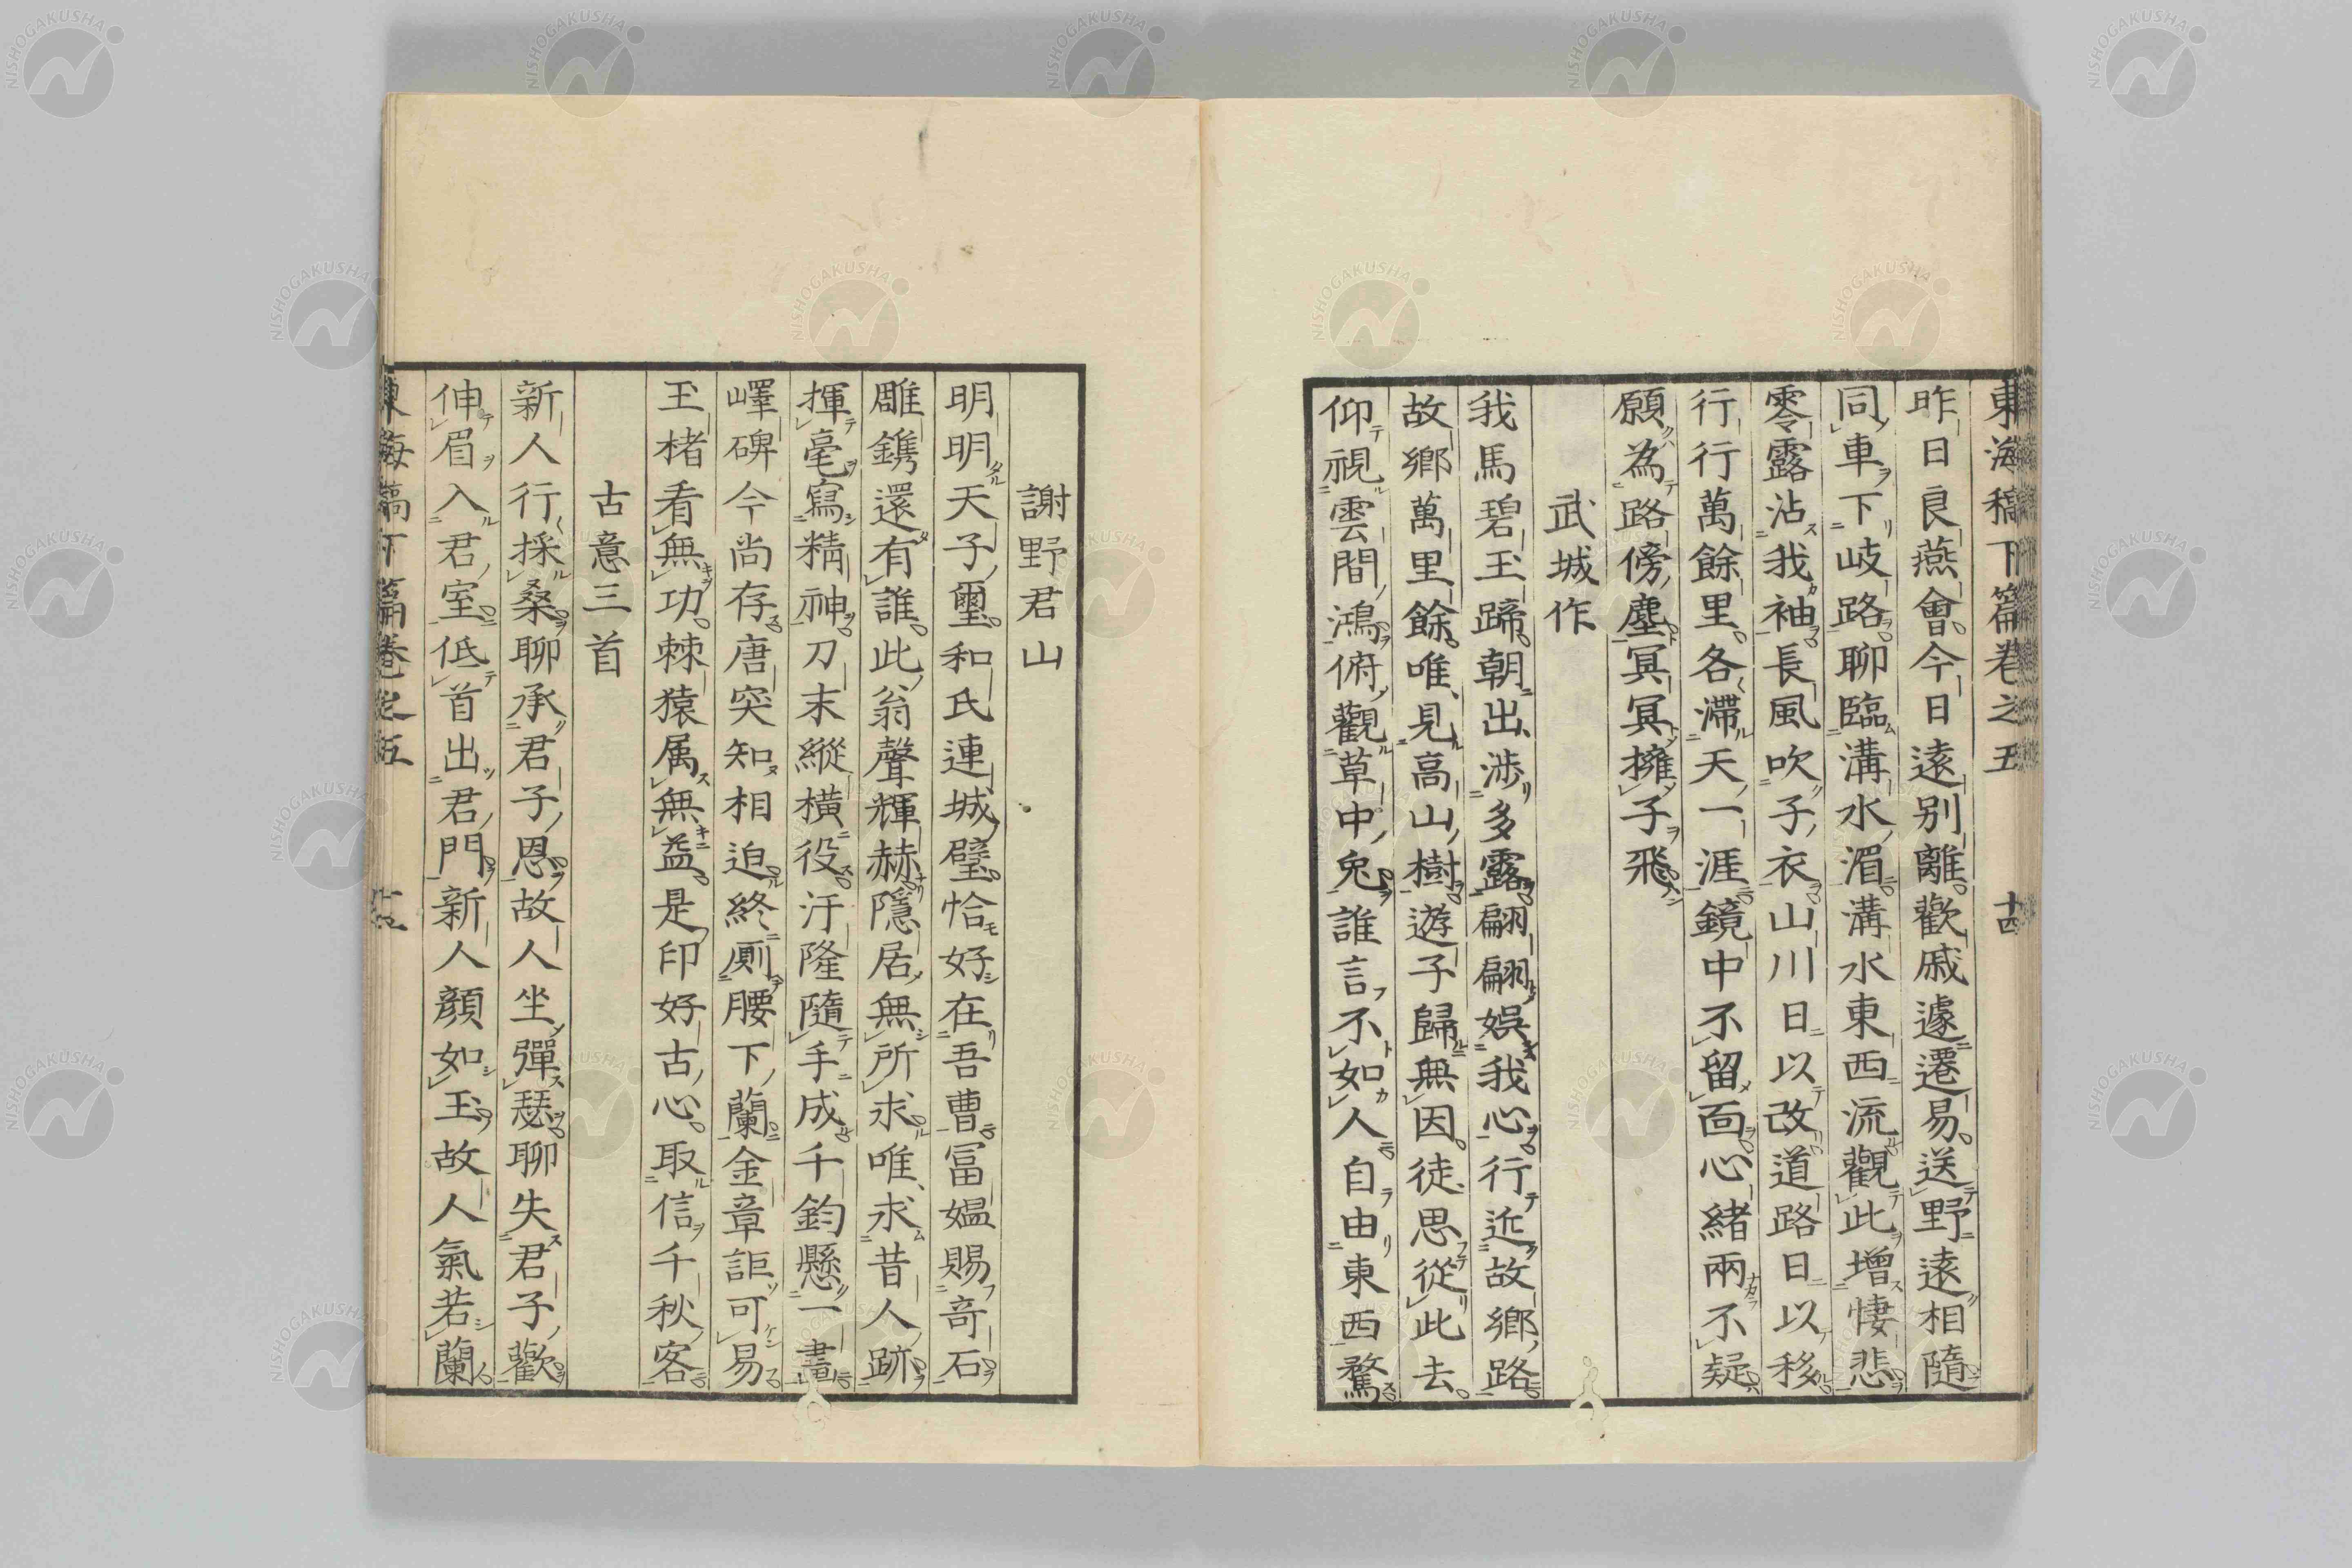 東海稿下篇卷之五 十四
昨日良燕會今日遠別離歡戚遽遷易送野遠相隨
同車下岐路聊臨溝水湄溝水東西流觀此增悽悲
零露沾我袖長風吹子衣山川日以改道路日以移
行行萬餘里各滯天一涯鏡中不留面心緒兩不疑
願為路傍塵冥冥擁子飛
武城作
我馬碧玉蹄朝出涉多露翩翩娯我心行近故鄉路
故鄉萬里餘唯見高山樹遊子歸無因徒思從此去
仰視雲間鴻俯觀草中兔誰言不如人自由東西騖
謝野君山
明明天子璽和氏連城璧恰好在吾曹冨媼賜奇石
雕鐫還有誰此翁聲輝赫隱居無所求唯求昔人跡
揮毫寫精神刀末縱橫役汙隆隨手成千鈞懸一畫
嶧碑今尚存唐突知相迫終厠腰下蘭金章詎可易
玉楮看無功棘猿属無益是印好古心取信千秋客
古意三首
新人行採桑聊承君子恩故人坐彈瑟聊失君子歡
伸眉入君室低首出君門新人顔如玉故人氣若蘭
東海稿下篇卷之五
NISHOGAKUSHA